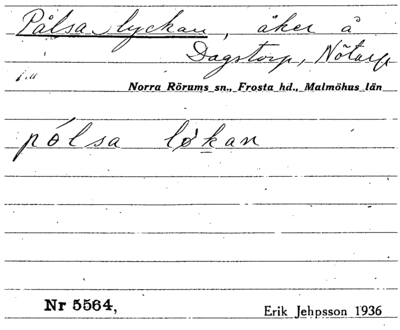 Pålsa lyckan, åker å
Dagstorp, Nötarp
Norra Rörums sn., Frosta hd., Malmöhus län
pólsa løkan
Nr 5564,
Erik Jehpsson 1936